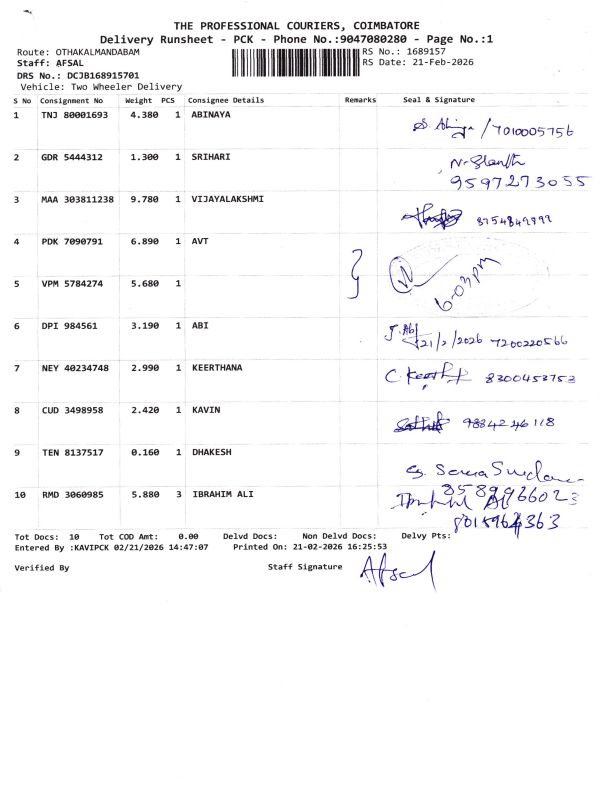 THE PROFESSIONAL COURIERS, COIMBATORE
Delivery Runsheet - PCK - Phone No.:9047080280 - Page No.:1
Route: OTHAKALMANDABAM RS No.: 1689157
Staff: AFSAL RS Date: 21-Feb-2026
DRS No.: DCJB168915701
Vehicle: Two Wheeler Delivery
S No Consignment No Weight PCS Consignee Details Remarks Seal & Signature
1 TNJ 80001693 4.380 1 ABINAYA /7010005756
2 GDR 5444312 1.300 1 SRIHARI
9597273055
3 MAA 303811238 9.780 1 VIJAYALAKSHMI
4 PDK 7090791 6.890 1 AVT
5 VPM 5784274 5.680 1 6-03pm
6 DPI 984561 3.190 1 ABI J. Abi
21/2/2026 7200220566
7 NEY 40234748 2.990 1 KEERTHANA 8300453753
8 CUD 3498958 2.420 1 KAVIN 9884246118
9 TEN 8137517 0.160 1 DHAKESH
10 RMD 3060985 5.880 3 IBRAHIM ALI
Tot Docs: 10 Tot COD Amt: 0.00 Delvd Docs: Non Delvd Docs: Delvy Pts:
Entered By :KAVIPCK 02/21/2026 14:47:07 Printed On: 21-02-2026 16:25:53
Verified By Staff Signature Afsal